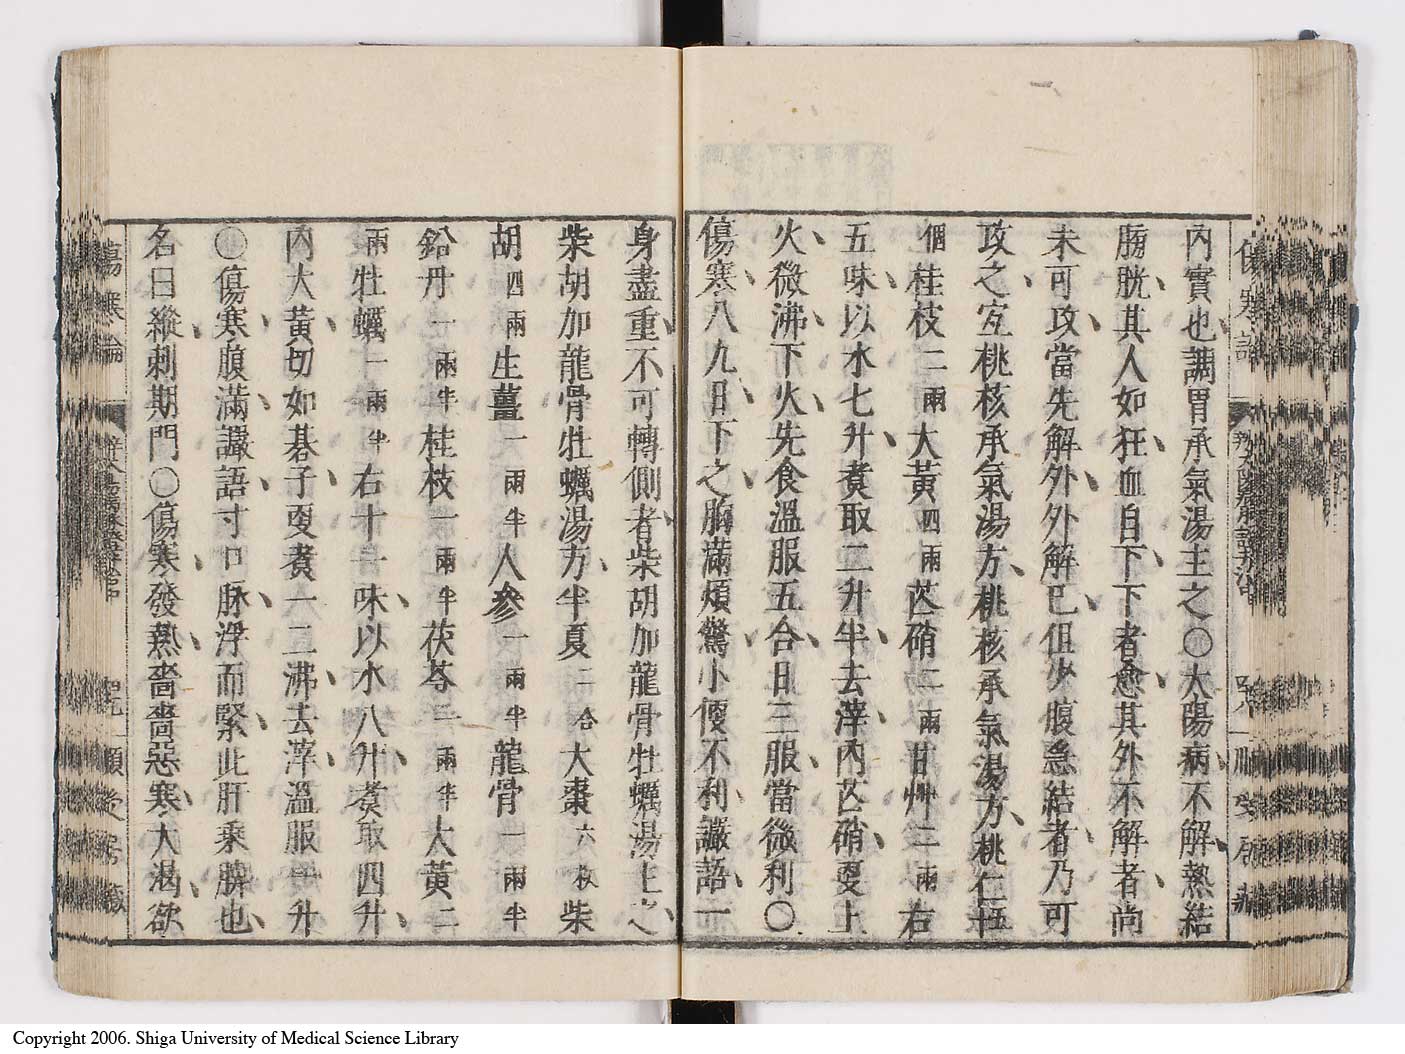 內實也調胃承氣湯主之○太陽病不解熱結
膀胱其人如狂血自下下者愈其外不解者尚
未可攻當先解外外解巳但少腹急結者乃可
攻之宜桃核承氣湯方桃核承氣湯方桃仁五十
個桂枝二兩大黃四兩芒硝二兩甘艸二兩右
五味以水七升煑取二升半去滓內芒硝更上
火微沸下火先食溫服五合日三服當微利○
傷寒八九日下之胸滿煩驚小便不利讝語一
身盡重不可轉側者柴胡加龍骨牡蠣湯主之
柴胡加龍骨牡蠣湯方半夏二合大棗六枚柴
胡四兩生薑一兩半人參一兩半龍骨一兩半
鉛丹一兩半桂枝一兩半茯苓一兩半大黃二
兩牡蠣一兩半右十一味以水八升煑取四升
內大黃切如碁子更煑一二沸去滓溫服一升
○傷寒腹滿讝語寸口脉浮而緊此肝乘脾也
名曰縱刺期門○傷寒發熱嗇嗇惡寒大渴欲
傷寒論
順受居藏
Copyright 2006. Shiga University of Medical Science Library